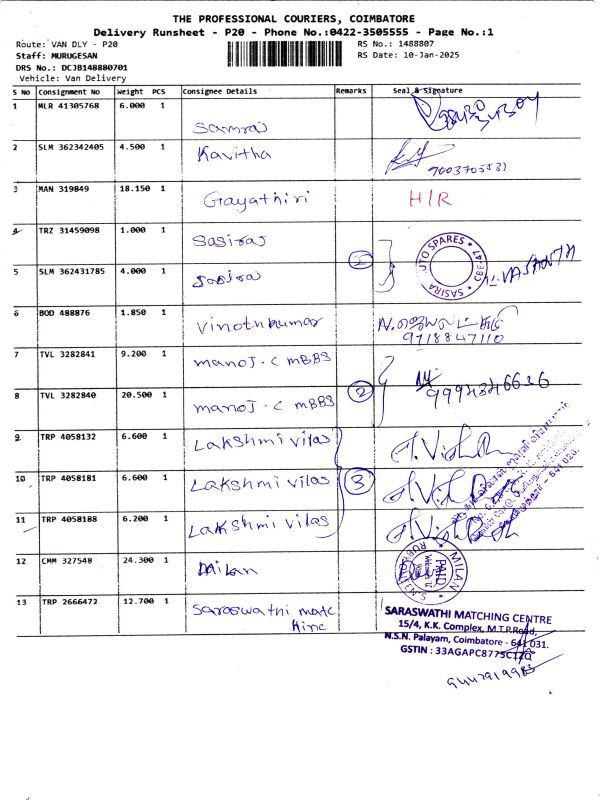 THE PROFESSIONAL COURIERS, COIMBATORE
Delivery Runsheet - P20 - Phone No.:0422-3505555 - Page No.:1
Route: VAN DLY - P20
RS No.: 1488807
Staff: MURUGESAN
RS Date: 10-Jan-2025
DRS No.: DCJB148880701
Vehicle: Van Delivery
S No Consignment No Weight PCS Consignee Details Remarks Seal & Signature
1 MLR 41305768 6.000 1 Samraj
2 SLM 362342405 4.500 1 Kavitha
3 MAN 319849 18.150 1 Gayathiri H/R
4 TRZ 31459098 1.000 1 Sasiraj
SASIRA AUTO SPARES * CBE-47 *
5 SLM 362431785 4.000 1 Sasiraj
6 BOD 488876 1.850 1 Vinothkumar
9718847110
7 TVL 3282841 9.200 1 manoj.c mBBS
8 TVL 3282840 20.500 1 manoj.c mBBS 2
9 TRP 4058132 6.600 1 Lakshmi vilas
10 TRP 4058181 6.600 1 Lakshmi vilas 3
11 TRP 4058188 6.200 1 Lakshmi vilas
12 CMM 327548 24.300 1 Milan
MILAN
PAID
13 TRP 2666472 12.700 1 Saraswathi matc
hinc
SARASWATHI MATCHING CENTRE
15/4, K.K. Complex, M.T.P.Road,
N.S.N. Palayam, Coimbatore - 641 031.
GSTIN : 33AGAPC8775C1ZQ